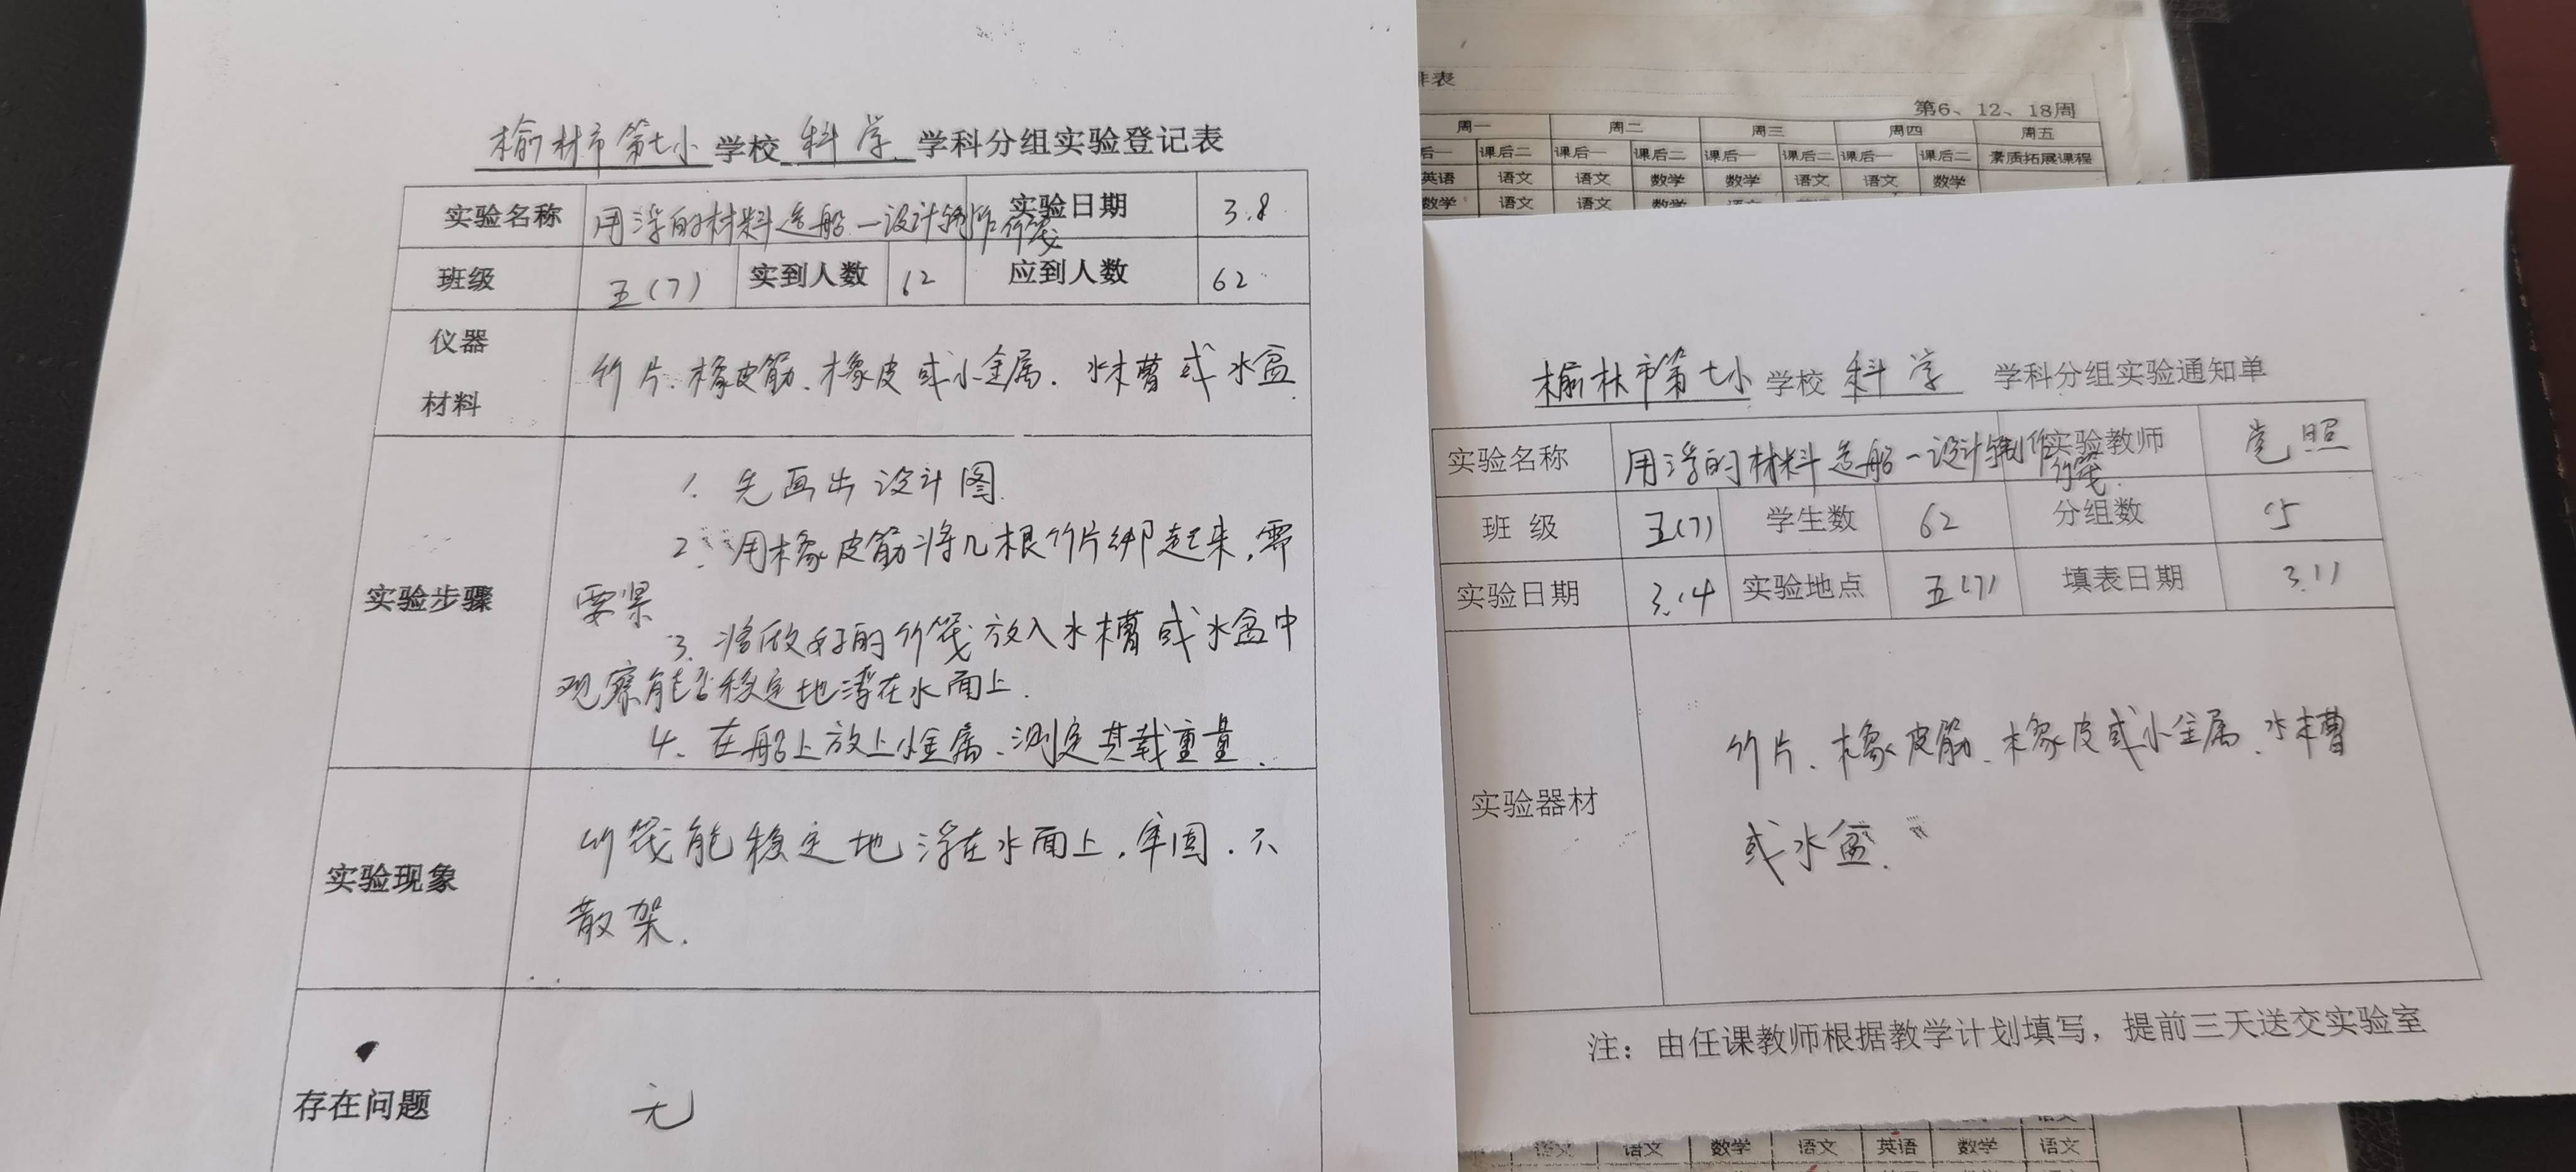 榆林市第七小 学校 科学 学科分组实验登记表
实验名称 用浮的材料造船—设计制作竹筏 实验日期 3.8
班级 五(7) 实到人数 62 应到人数 62
仪器
材料
竹片、橡皮筋、橡皮或小金属、水槽或水盆
实验步骤
1. 先画出设计图
2. 用橡皮筋将几根竹片绑起来,需
要紧
3. 将做好的竹筏放入水槽或水盆中
观察能否稳定地浮在水面上.
4. 在船上放上小金属、测定其载重量.
实验现象
竹筏能稳定地浮在水面上,牢固.不
散架.
存在问题 无
排表
第6、12、18周
周一 周二 周三 周四 周五
课后二 课后一 课后二 课后一 课后二 课后一 课后二 素质拓展课程
英语 语文 语文 数学 数学 语文 语文 数学
数学 语文 语文 数学
榆林市第七小 学校 科学 学科分组实验通知单
实验名称 用浮的材料造船—设计制作竹筏 实验教师 党照
班 级 五(7) 学生数 62 分组数 15
实验日期 3.14 实验地点 五(7) 填表日期 3.11
实验器材
竹片、橡皮筋、橡皮或小金属、水槽
或水盆.
注：由任课教师根据教学计划填写，提前三天送交实验室
语文 语文 数学 语文 英语 数学 语文